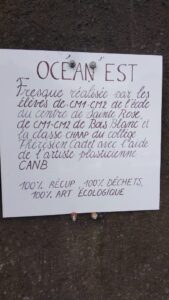 OCÉAN EST
Fresque réalisée par les
élèves de CM1-CM2 de l'école
du centre de Sainte Rose,
de CM1-CM2 de Bas Blanc et
la classe CHAAP du collège
Thérésien Cadet avec l'aide
de l'artiste plasticienne
CANB
100% RÉCUP, 100% DÉCHETS,
100% ART ÉCOLOGIQUE